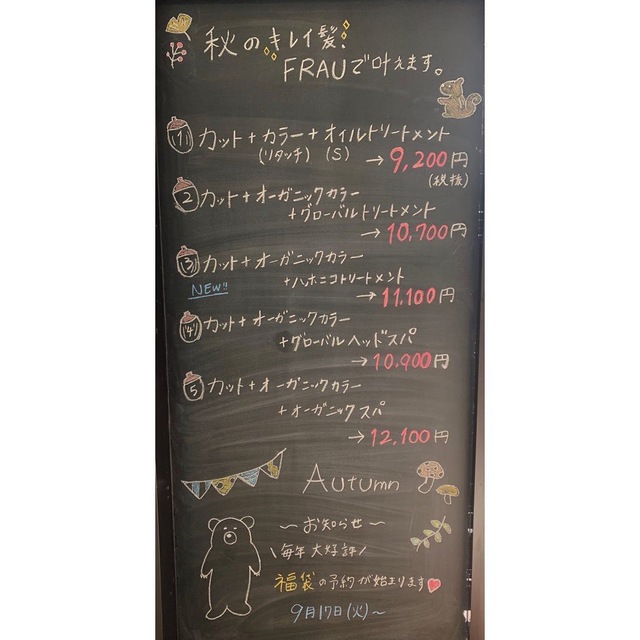 秋のキレイ髪!
FRAUで叶えます。
1 カット+カラー+オイルトリートメント
(リタッチ) (S) →9,200円
(税抜)
2 カット+オーガニックカラー
+グローバルトリートメント
→10,700円
3 カット+オーガニックカラー
NEW!! +ハホニコトリートメント
→11,100円
4 カット+オーガニックカラー
+グローバルヘッドスパ
→10,900円
5 カット+オーガニックカラー
+オーガニックスパ
→12,100円
Autumn
〜お知らせ〜
\毎年大好評/
福袋の予約が始まります♥
9月17日(火)〜